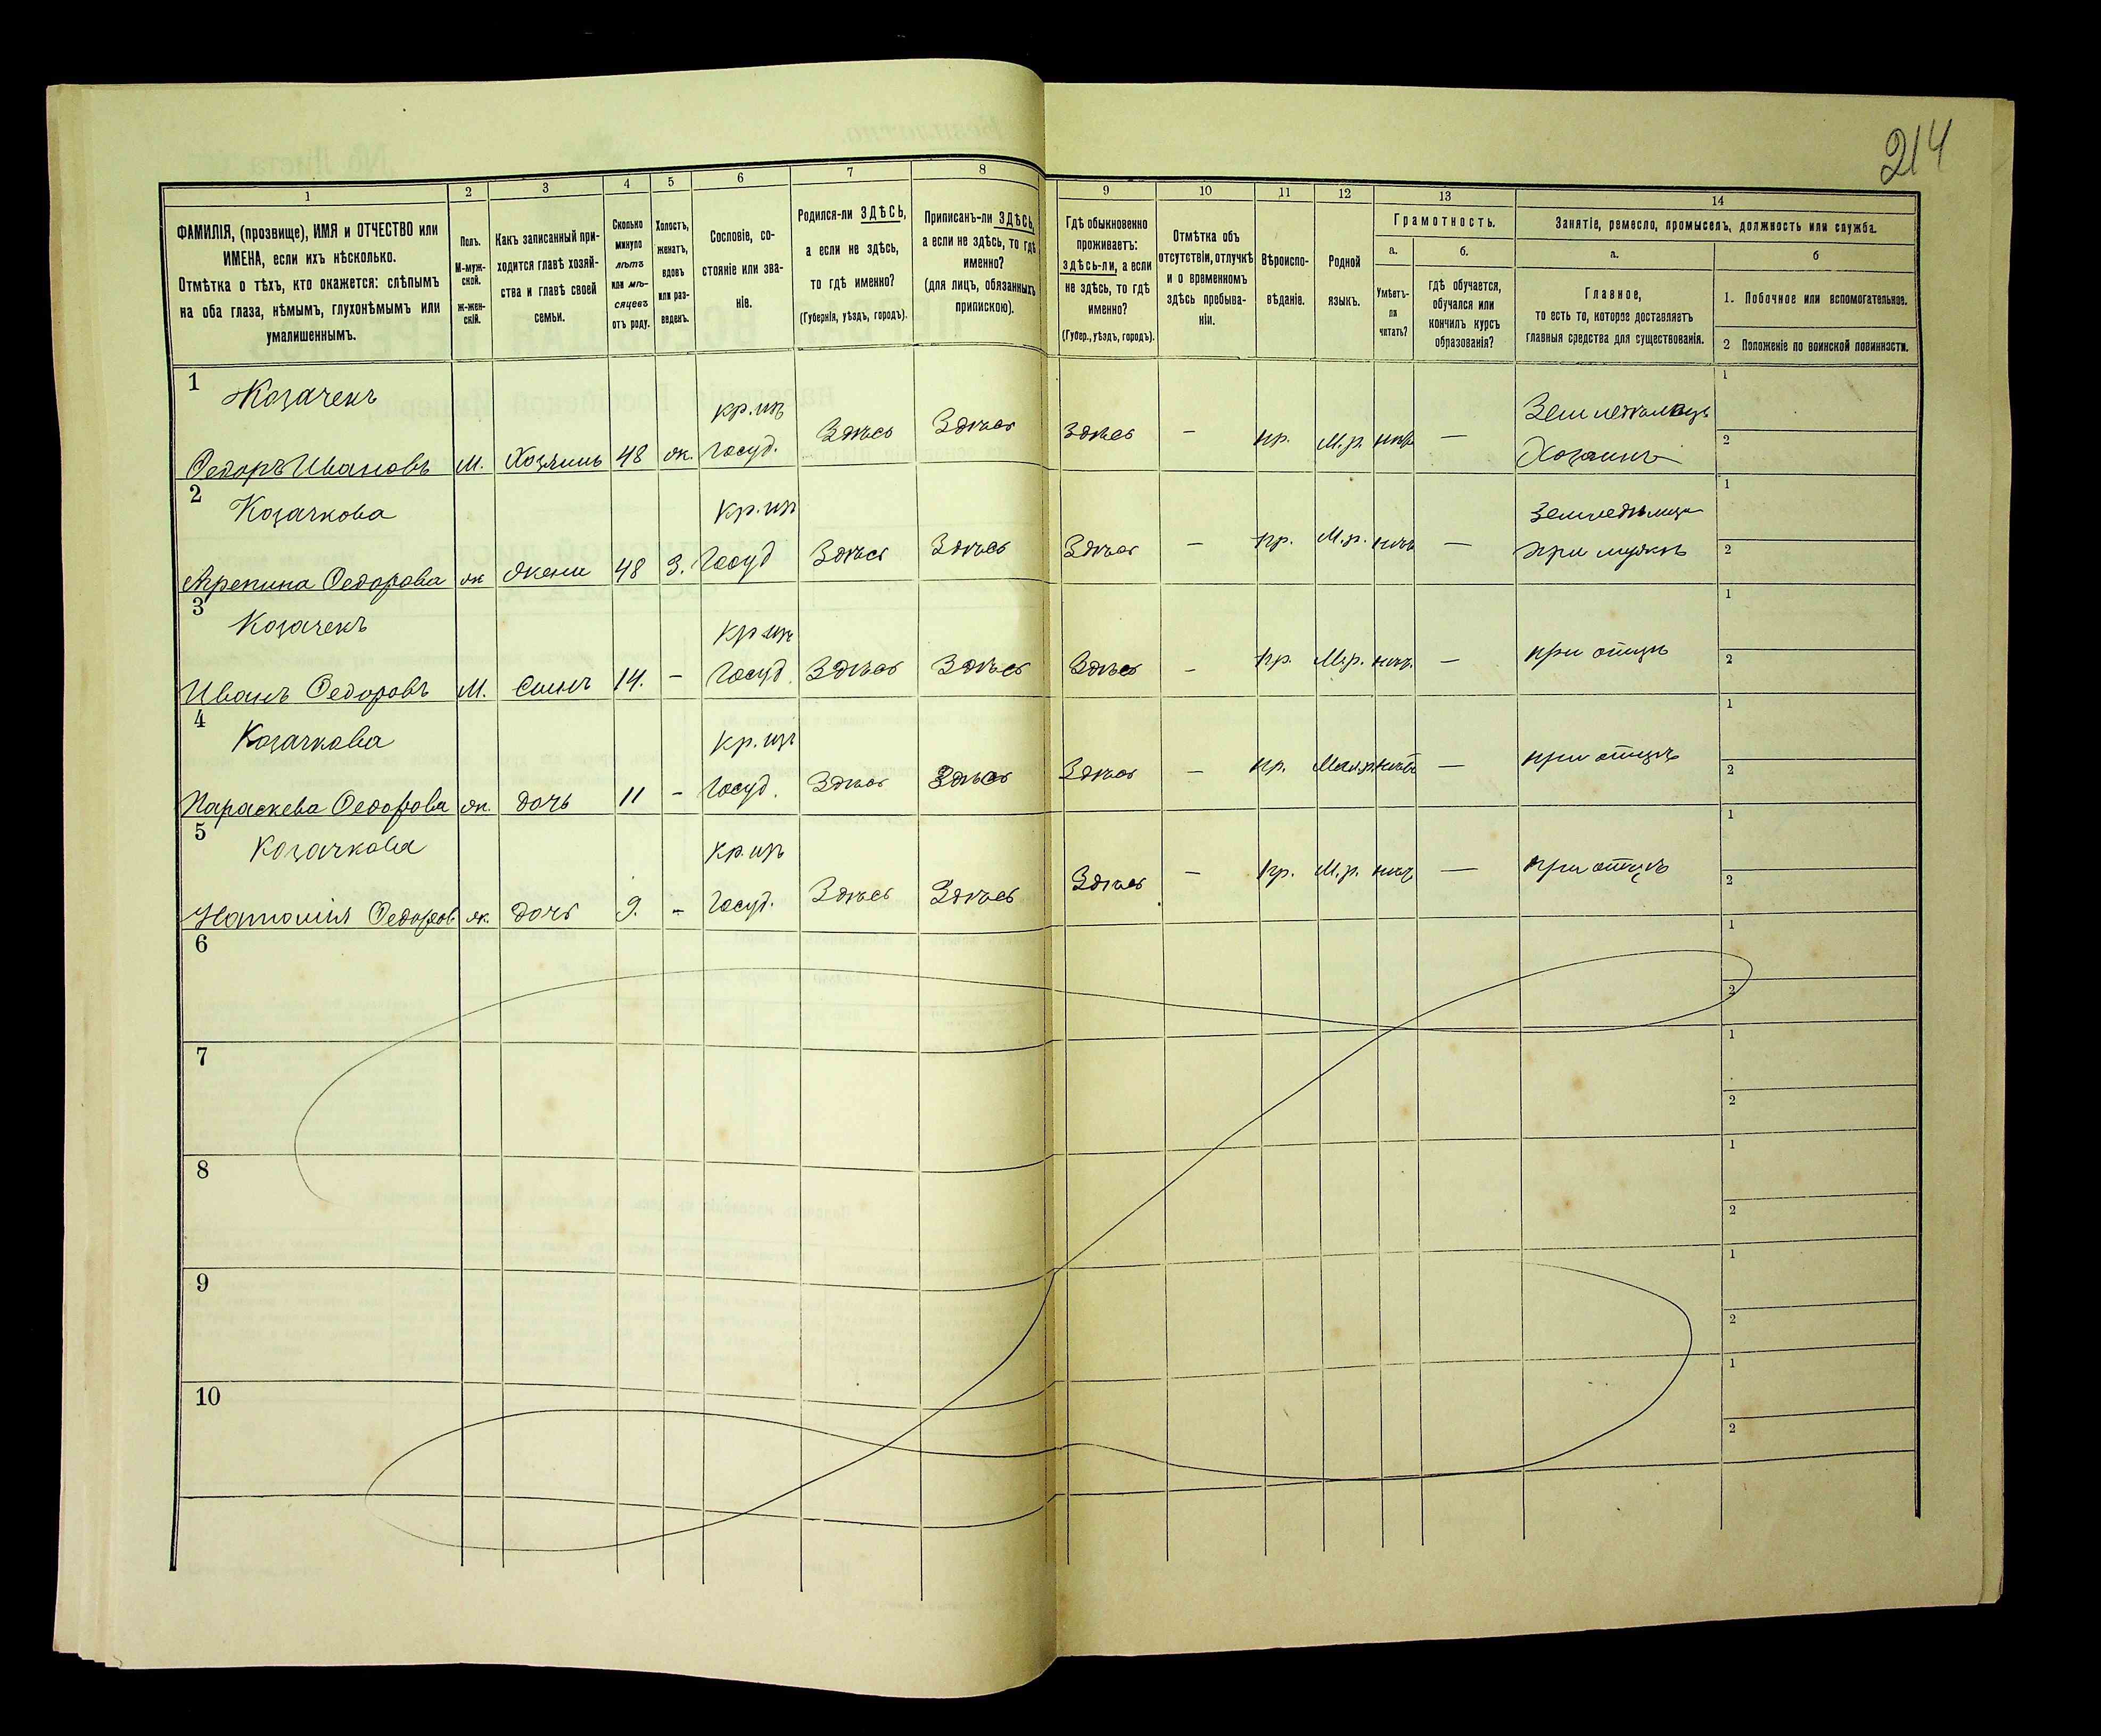 214
1 2 3 4 5 6 7 8 9 10 11 12 13 14
ФАМИЛІЯ, (прозвище), ИМЯ и ОТЧЕСТВО или
ИМЕНА, если ихъ нѣсколько.
Отмѣтка о тѣхъ, кто окажется: слѣпымъ
на оба глаза, нѣмымъ, глухонѣмымъ или
умалишеннымъ.
Полъ.
М-муж-
ской.
ж-жен-
скій.
Какъ записанный при-
ходится главѣ хозяй-
ства и главѣ своей
семьи.
Сколько
минуло
лѣтъ
или мѣ-
сяцевъ
отъ роду.
Холостъ,
женатъ,
вдовъ
или раз-
веденъ.
Сословіе, со-
стояніе или зва-
ніе.
Родился-ли ЗДѢСЬ,
а если не здѣсь,
то гдѣ именно?
(Губернія, уѣздъ, городъ).
Приписанъ-ли ЗДѢСЬ,
а если не здѣсь, то гдѣ
именно?
(для лицъ, обязанныхъ
припискою).
Гдѣ обыкновенно
проживаетъ:
здѣсь-ли, а если
не здѣсь, то гдѣ
именно?
(Губер., уѣздъ, городъ).
Отмѣтка объ
отсутствіи, отлучкѣ
и о временномъ
здѣсь пребыва-
ніи.
Вѣроиспо-
вѣданіе.
Родной
языкъ.
Грамотность.
а.
Умѣетъ-
ли
читать?
б.
гдѣ обучается,
обучался или
кончилъ курсъ
образованія?
Занятіе, ремесло, промыселъ, должность или служба.
а.
Главное,
то есть то, которое доставляетъ
главныя средства для существованія.
б
1. Побочное или вспомогательное.
2 Положеніе по воинской повинности.
1 Козаченъ кр. изъ Земледѣлецъ 1
Ѳедоръ Ивановъ М. Хозяинъ 48 ж. Госуд. Здѣсь Здѣсь Здѣсь — пр. М.р. нѣтъ — Хозяинъ 2
2 Козачкова Кр. изъ земледѣлица 1
Ѳедорова ж жена 48 З. Госуд Здѣсь Здѣсь Здѣсь — пр. М.р. нѣтъ — при мужѣ 2
3 Козаченъ Кр изъ 1
Иванъ Ѳедоровъ М. Сынъ 14. - Госуд. Здѣсь Здѣсь Здѣсь - пр. М.р. нѣтъ — при отцѣ 2
4 Козачкова Кр. изъ 1
Параскева Ѳедорова ж. дочь 11 - Госуд. Здѣсь Здѣсь Здѣсь — пр. нѣтъ — при отцѣ 2
5 Козачкова Кр. изъ 1
Ѳедоров ж. дочь 9. - Госуд. Здѣсь Здѣсь Здѣсь — пр. М.р. нѣтъ — при отцѣ 2
6 1
2
7 1
2
8 1
2
9 1
2
10 1
2